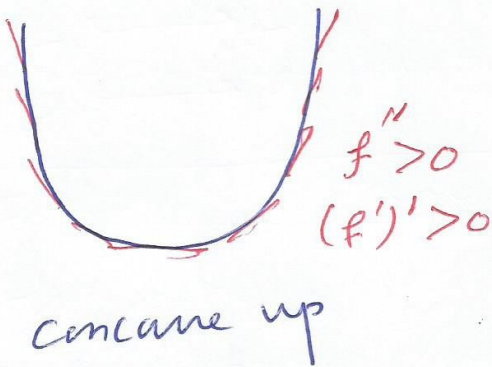 f''>0
(f')'>0
concave up